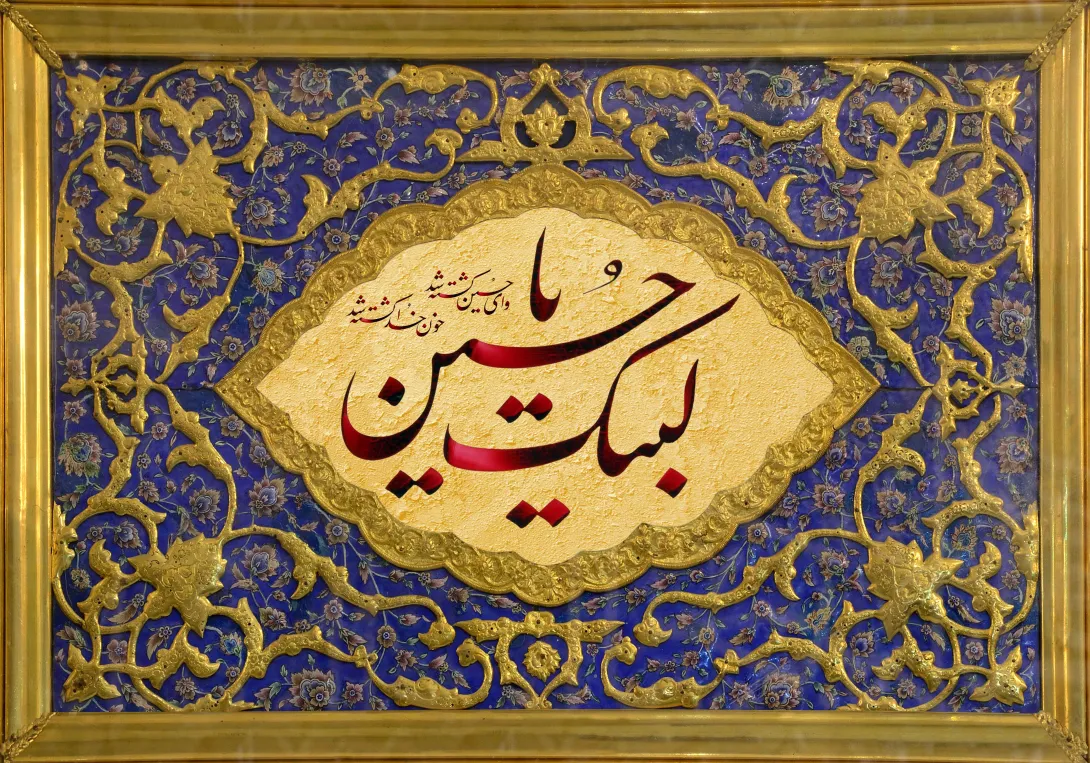 لبیک یا حُسین
وای حسین کشته شد
خون خدا کشته شد